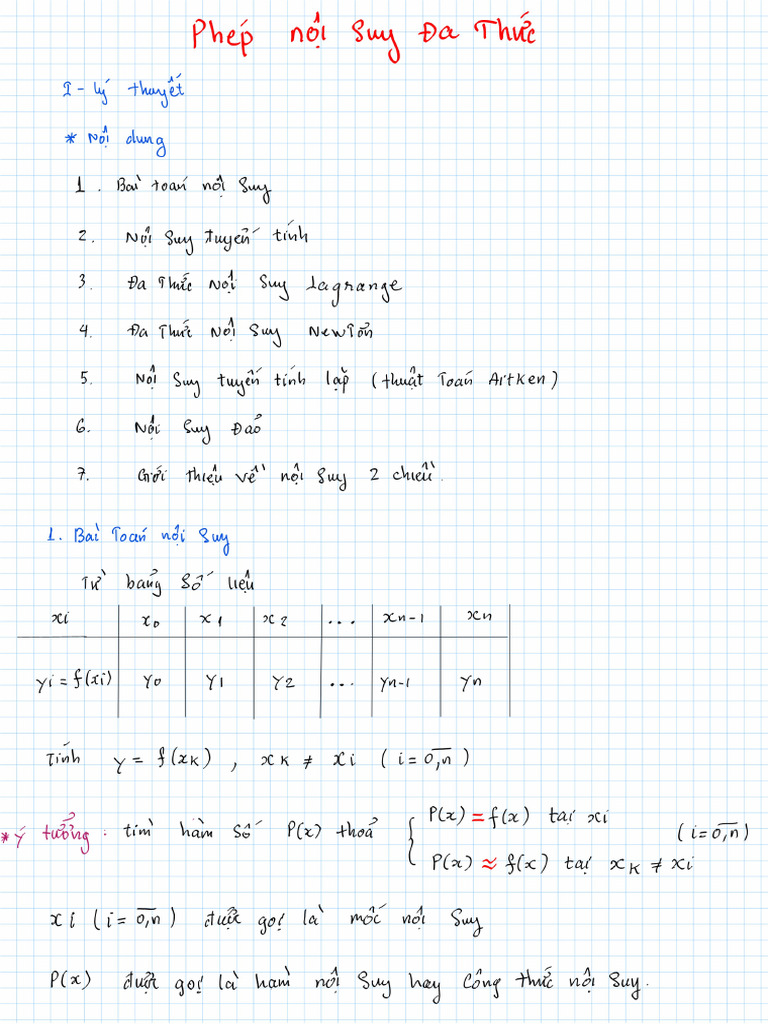 Phép nội Suy Đa Thức
I - lý thuyết
* Nội dung
1. Bài toán nội Suy
2. Nội Suy tuyến tính
3. Đa Thức Nội Suy Lagrange
4. Đa Thức Nội Suy NewTơn
5. Nội Suy tuyến tính lặp (thuật Toán Aitken)
6. Nội Suy Đảo
7. Giới thiệu về nội Suy 2 chiều.
1. Bài Toán nội Suy
Từ bảng Số liệu
xi x₀ x₁ x₂ ... xₙ₋₁ xₙ
yi = f(xi) y₀ y₁ y₂ ... yₙ₋₁ yₙ
Tính y = f(xK) , xK ≠ xi ( i = 0,n̅ )
* Ý tưởng : tìm hàm Số P(x) thoả { P(x) = f(x) tại xi
P(x) ≈ f(x) tại xK ≠ xi (i = 0,n̅)
xi (i = 0,n̅) được gọi là mốc nội Suy
P(x) được gọi là hàm nội Suy hay Công thức nội Suy.